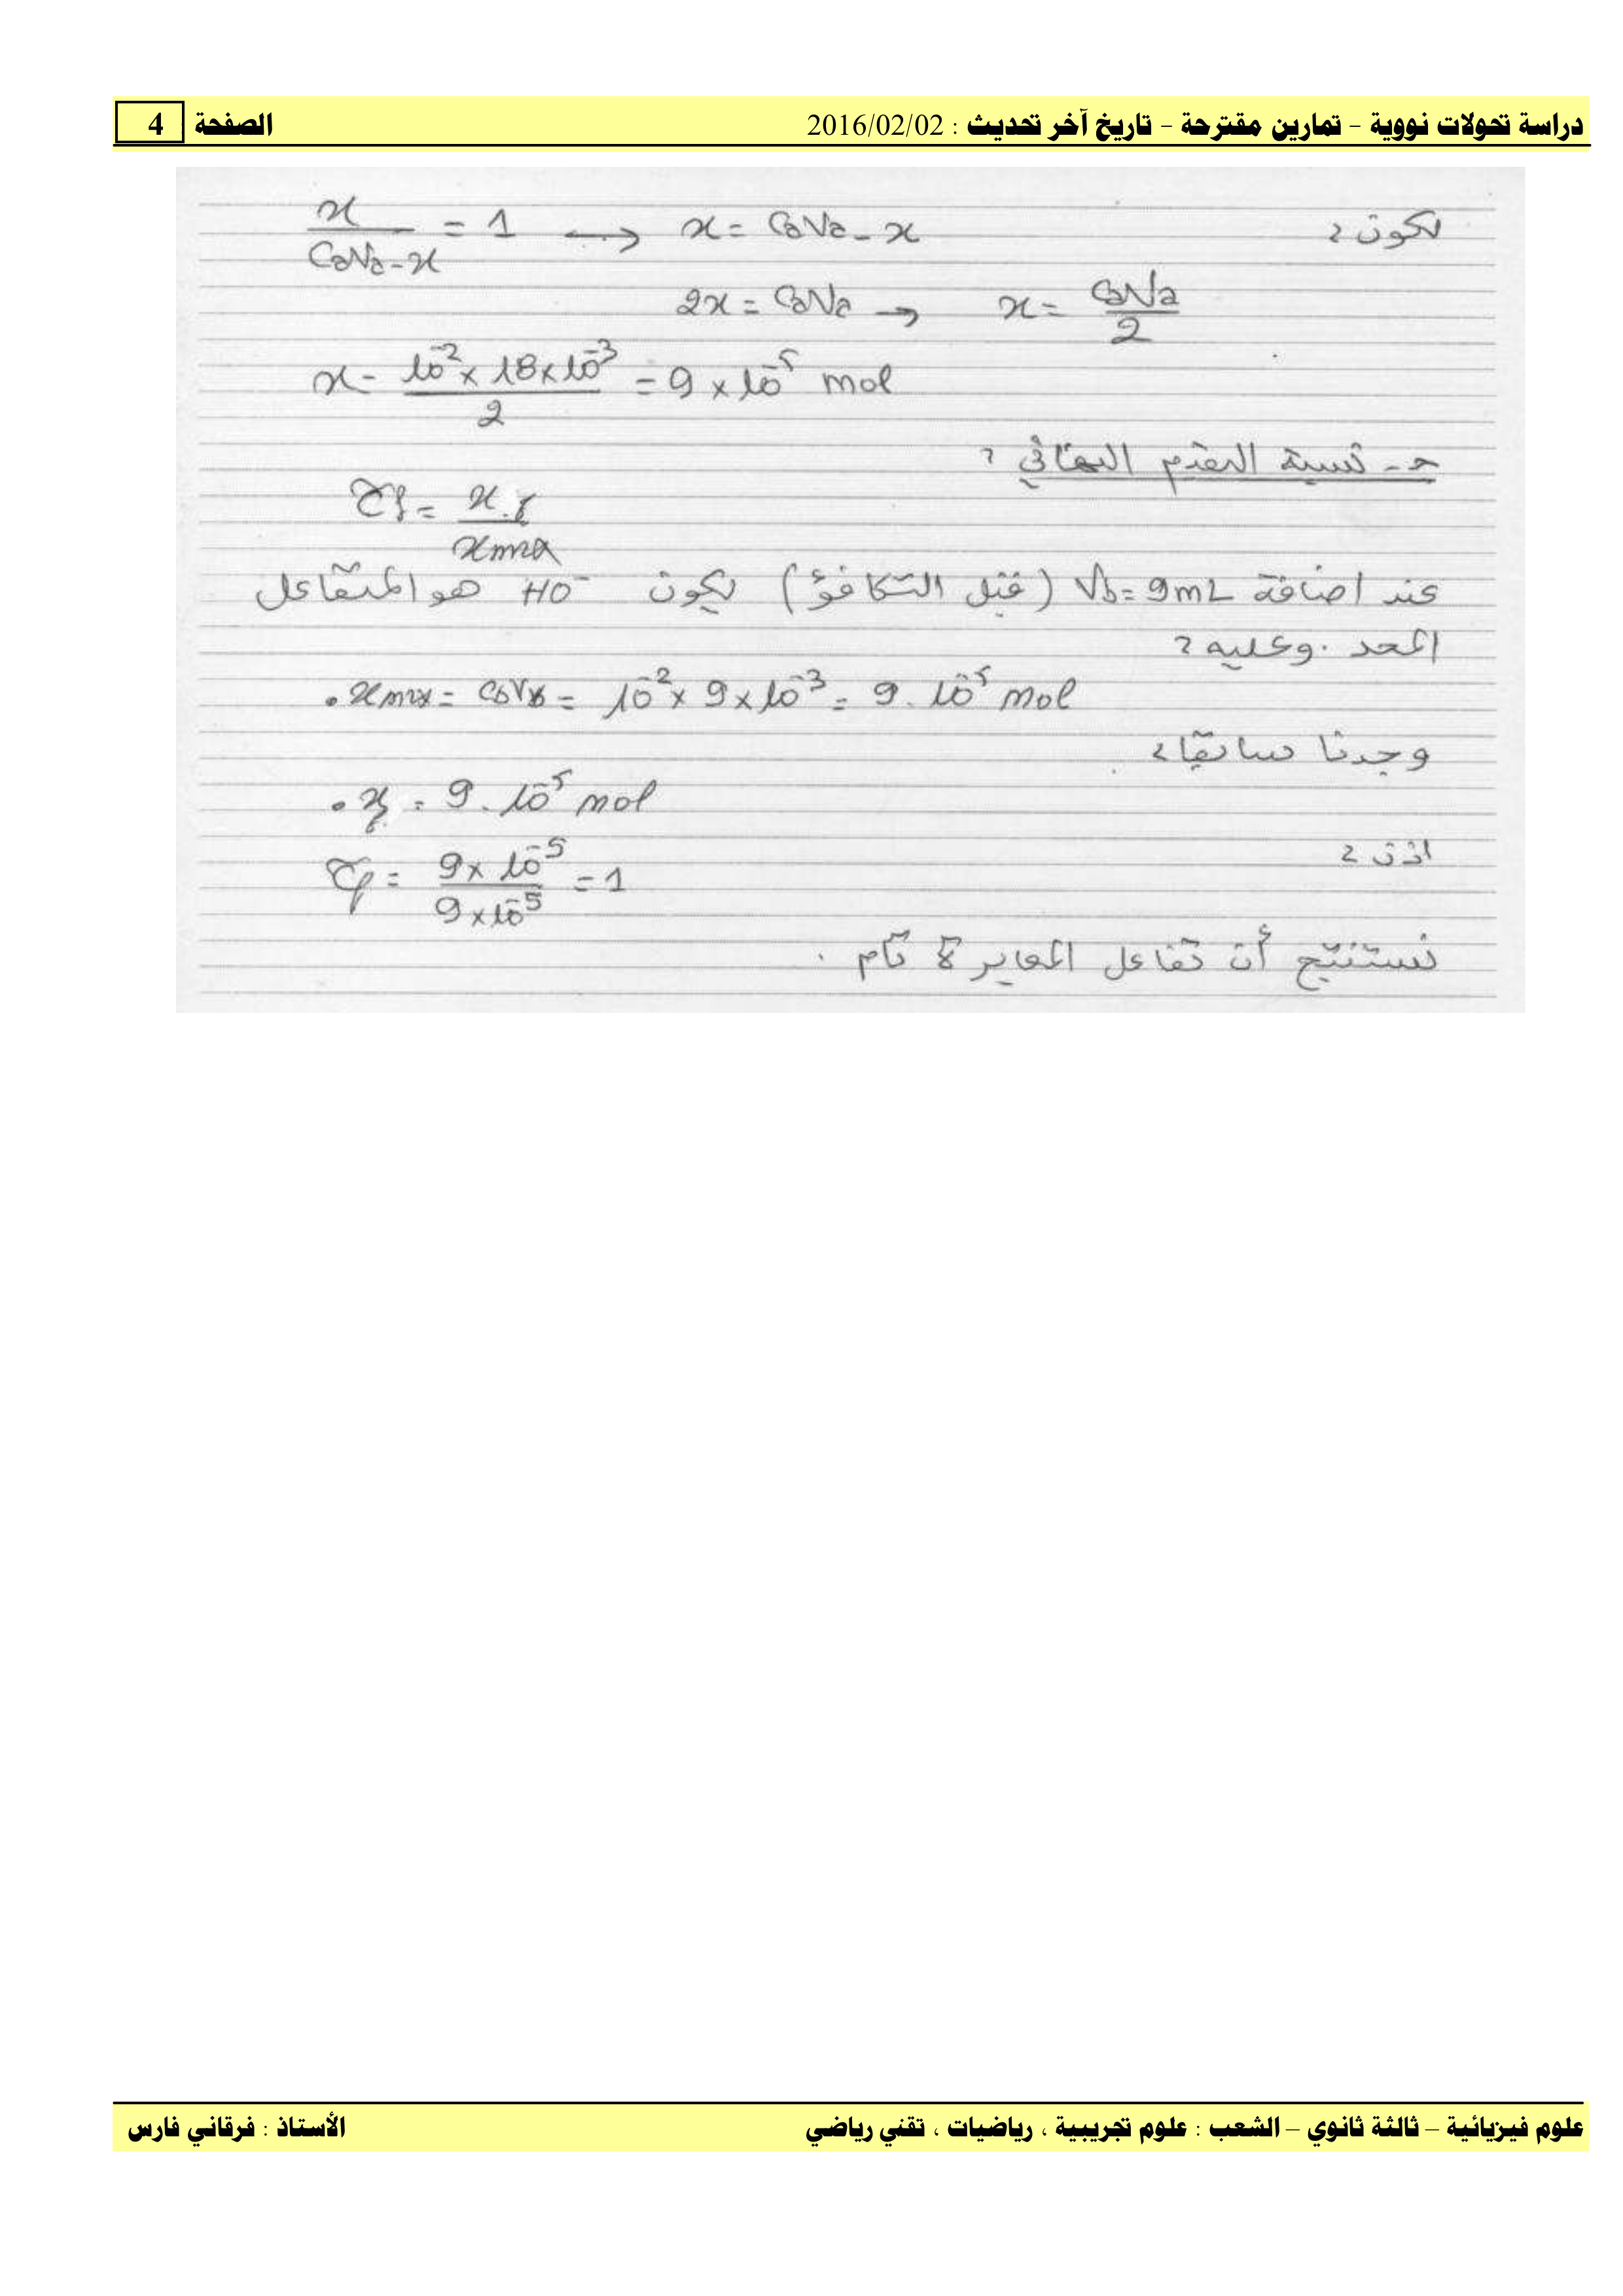 دراسة تحولات نووية – تمارين مقترحة – تاريخ آخر تحديث : 2016/02/02 الصفحة 4
يكون :
x / (CaVa - x) = 1 → x = CaVa - x
2x = CaVa → x = CaVa / 2
x = 10⁻² × 18 × 10⁻³ / 2 = 9 × 10⁻⁵ mol
جـ - نسبة التقدم النهائي :
τf = xf / xmax
عند اضافة Vb = 9mL (قبل التكافؤ) يكون HO⁻ هو المتفاعل
المحد . وعليه :
• xmax = CbVb = 10⁻² × 9 × 10⁻³ = 9 . 10⁻⁵ mol
وجدنا سابقا :
• xf = 9 . 10⁻⁵ mol
اذن :
τf = 9 × 10⁻⁵ / 9 × 10⁻⁵ = 1
نستنتج أن تفاعل المعايرة تام .
علوم فيزيائية – ثالثة ثانوي – الشعب : علوم تجريبية ، رياضيات ، تقني رياضي الأستاذ : فرقاني فارس